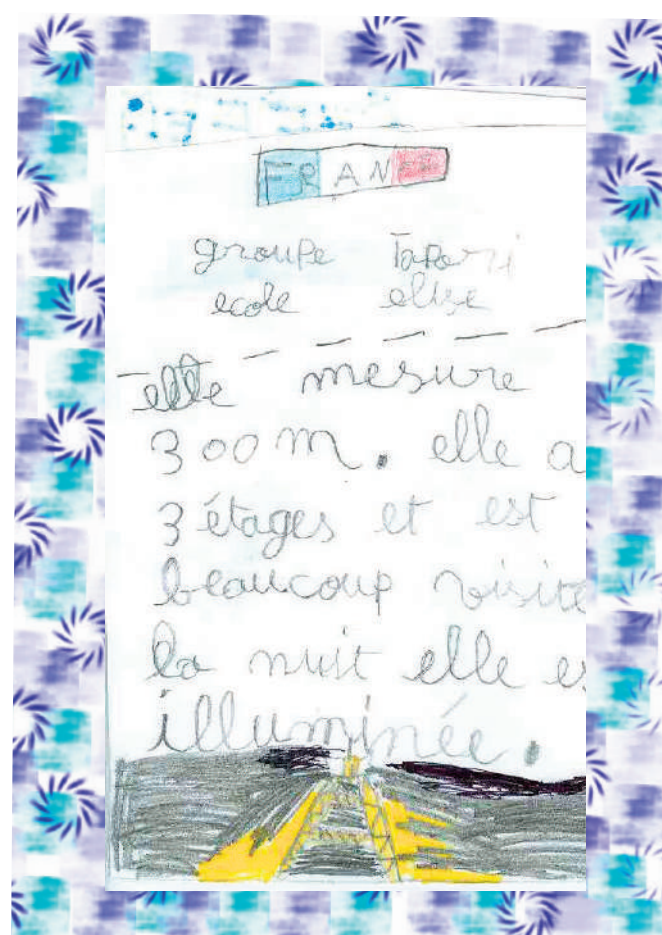 FRANCE
groupe Tapori
ecole elise
elle mesure
300m. elle a
3 étages et est
beaucoup visité
la nuit elle es
illuminée.